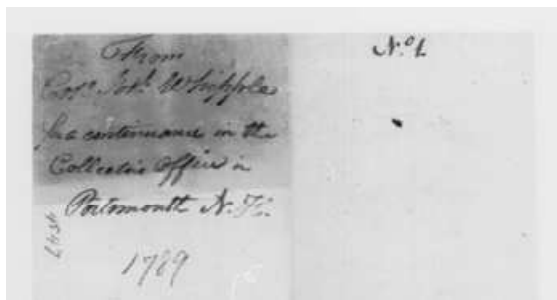 From
Col. Jos. Whipple
for a continuance in the
Collectors Office in
Portsmouth N. H.
1789
No. 1